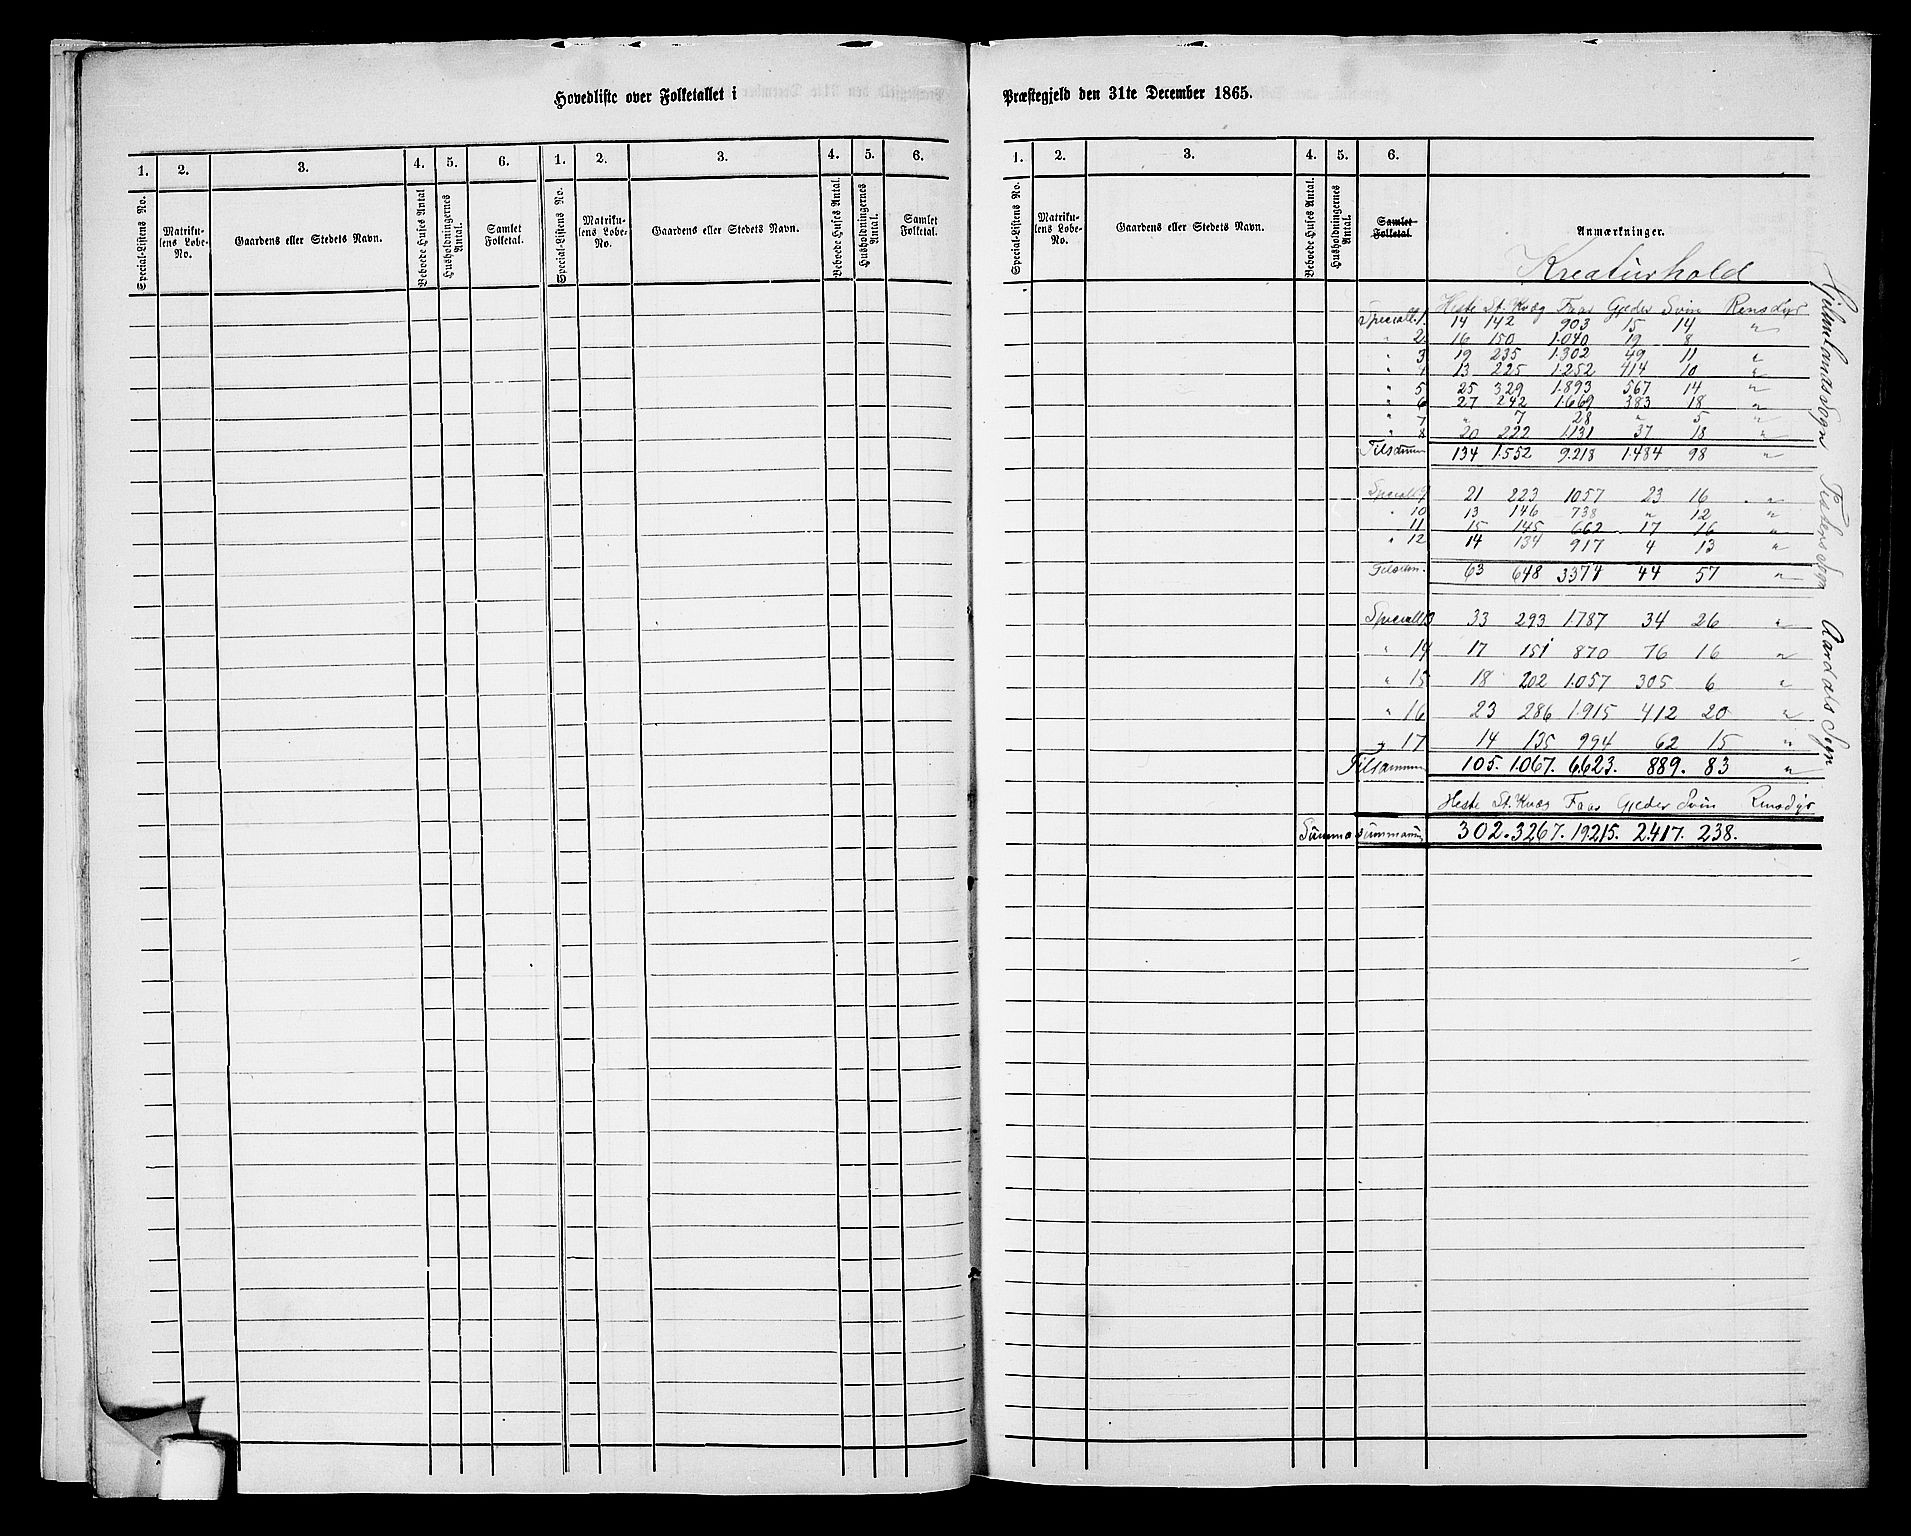 Hovedliste over Folketallet i
1. 2. 3. 4. 5. 6. 1. 2. 3. 4. 5. 6.
Special-Listens No. Matrikulens Løbe-No. Gaardens eller Stedets Navn. Beboede Huses Antal Husholdningernes Antal. Samlet Folketal. Special-Listens No. Matrikulens Løbe-No. Gaardens eller Stedets Navn. Beboede Huses Antal. Husholdningernes Antal. Samlet Folketal.
Præstegjeld den 31te December 1865.
1. 2. 3. 4. 5. 6.
Special-Listens No. Matrikulens Løbe-No. Gaardens eller Stedets Navn. Beboede Huses Antal. Husholdningernes Antal. Samlet Folketal. Anmærkninger.
Kreaturhold
Heste St. Kvæg Faar Gjeder Svin Rensdyr
Speciall. 1. 14 142 903 15 14 "
" 2 16 150 1.040 19 8
" 3 19 235 1.302 49 11 "
" 4 13 225 1.252 414 10 "
" 5 25 329 1.893 567 14 "
" 6 27 242 1.669 383 18 "
" 7 " 7 28 " 5 "
" 8 20 222 1.131 37 18 "
Tilsamm 134 1.552 9.218 1.484 98 "
Speciall 9 21 223 1057 23 16 "
" 10 13 146 738 " 12 "
11 15 145 662 17 16 "
" 12 14 134 917 4 13 "
Tilsam. 63 648 3374 44 57 "
Speciall 13 33 293 1.787 34 26 "
" 14 17 151 870 76 16 "
" 15 18 202 1.057 305 6 "
" 16 23 286 1.915 412 20 "
" 17 14 135 994 62 15 "
Tilsammen 105. 1.067. 6.623. 889. 83 "
Heste St. Kvæg Faar Gjeder Svin Rensdyr
Summa summarum 302. 3267. 19.215. 2.417. 238.
Hjelmelands Sogn Fister Sogn Aardals Sogn